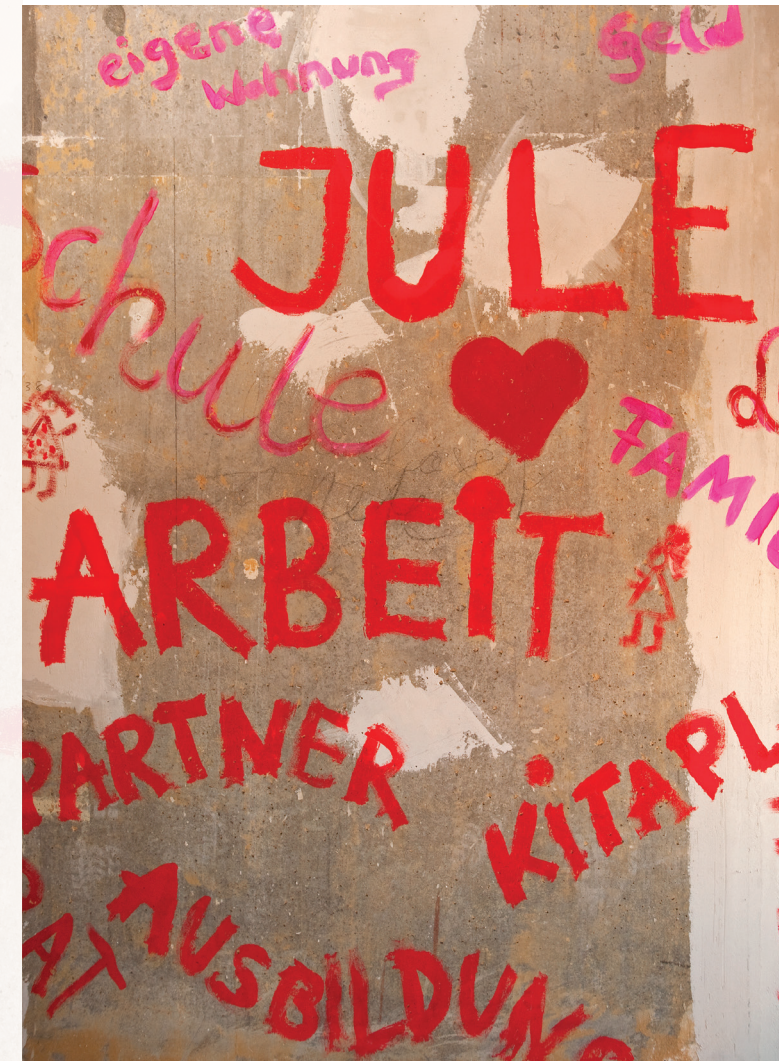 eigene Geld
Wohnung
JULE
Schule
FAMI
ARBEIT
PARTNER
KITAPL
AT
AUSBILDUNG